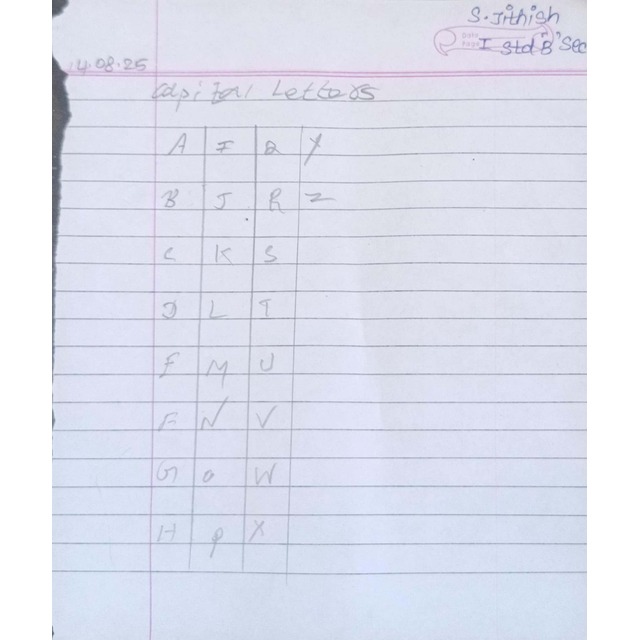 S. Jithish
I std "B" Sec
14.08.25
Capital Letters
A I Q Y
B J R Z
C K S
D L T
E M U
F N V
G O W
H P X